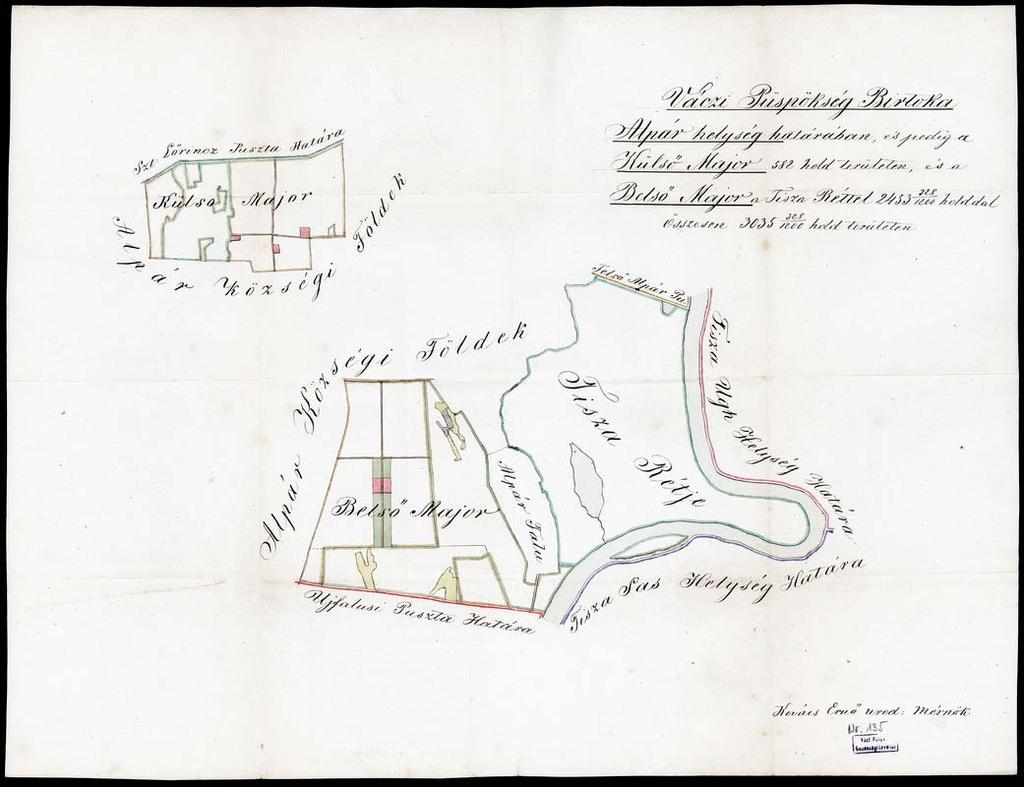 Váczi Püspökség Birtoka
Alpár helység határában, és pedig a
Külső Major 582 hold területen, és a
Belső Major a Tisza Réttel 2453 328/1200 holddal
Összesen 3035 328/1200 hold területen
Szt Lőrincz Puszta Határa
Külső Major
Alpár Községi Földek
Felső Alpár Pu.
Alpár Községi Földek
Tisza Ugh Helység Határa
Tisza Rétje
Alpár Falu
Belső Major
Ujfalusi Puszta Határa
Tisza Sas Helység Határa
Kovács Ernő urod: Mérnök
Nr. 135